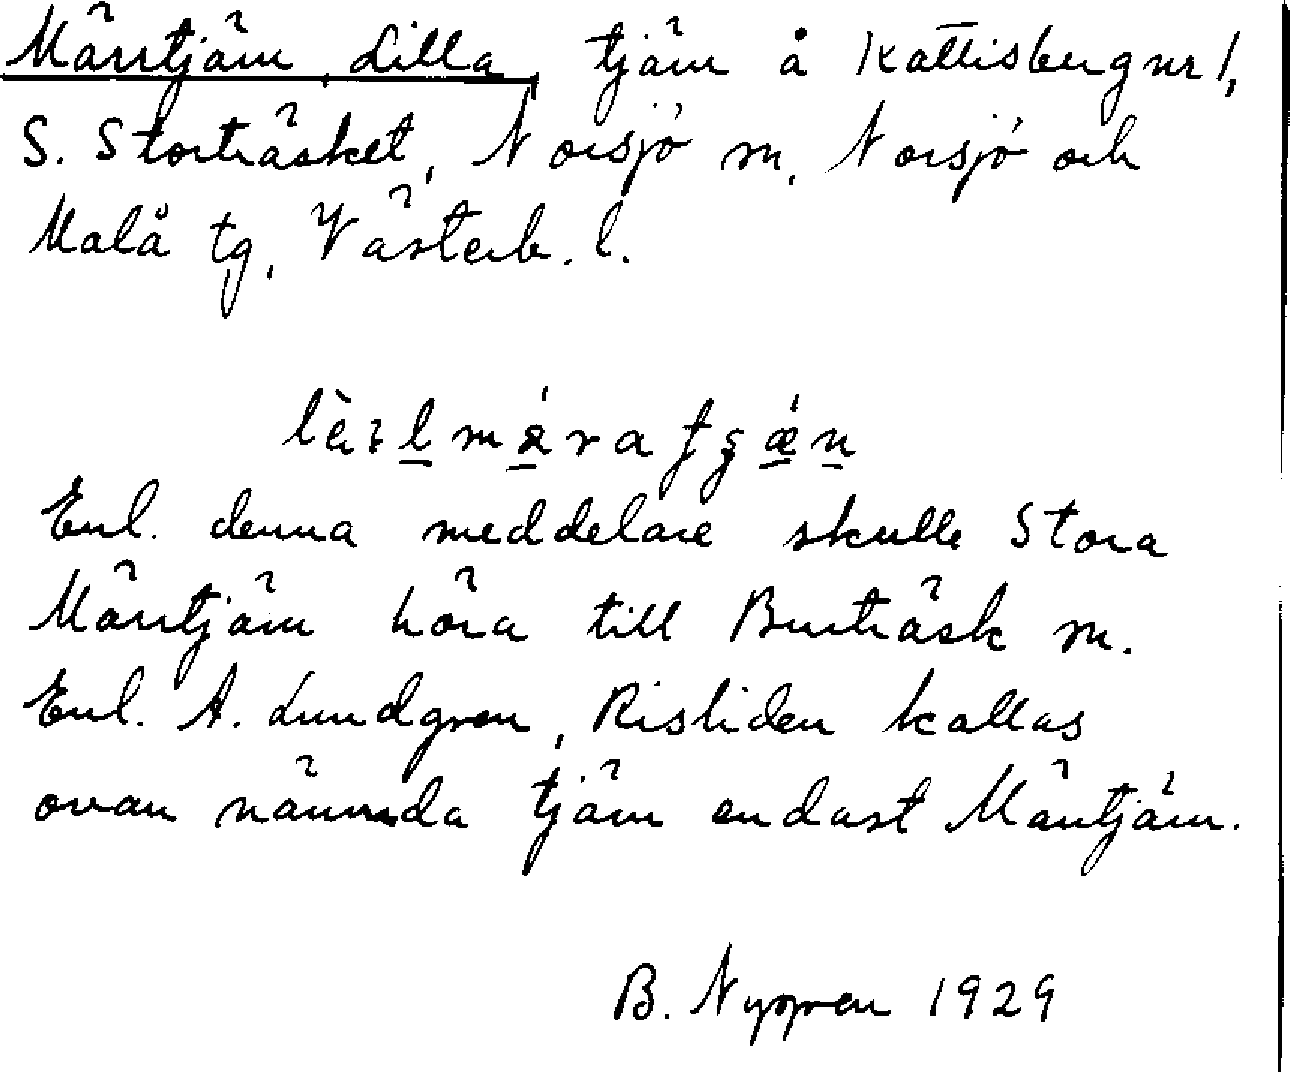 Märrtjärn, Lilla, tjärn å Kattisberg nr 1,
S. Storträsket, Norsjö sn, Norsjö och
Malå tg, Västerb. l.
Enl. denna meddelare skulle Stora
Märrtjärn höra till Burträsk sn.
Enl. A. Lundgren, Risliden kallas
ovan nämnda tjärn endast Märrtjärn.
B. 1929